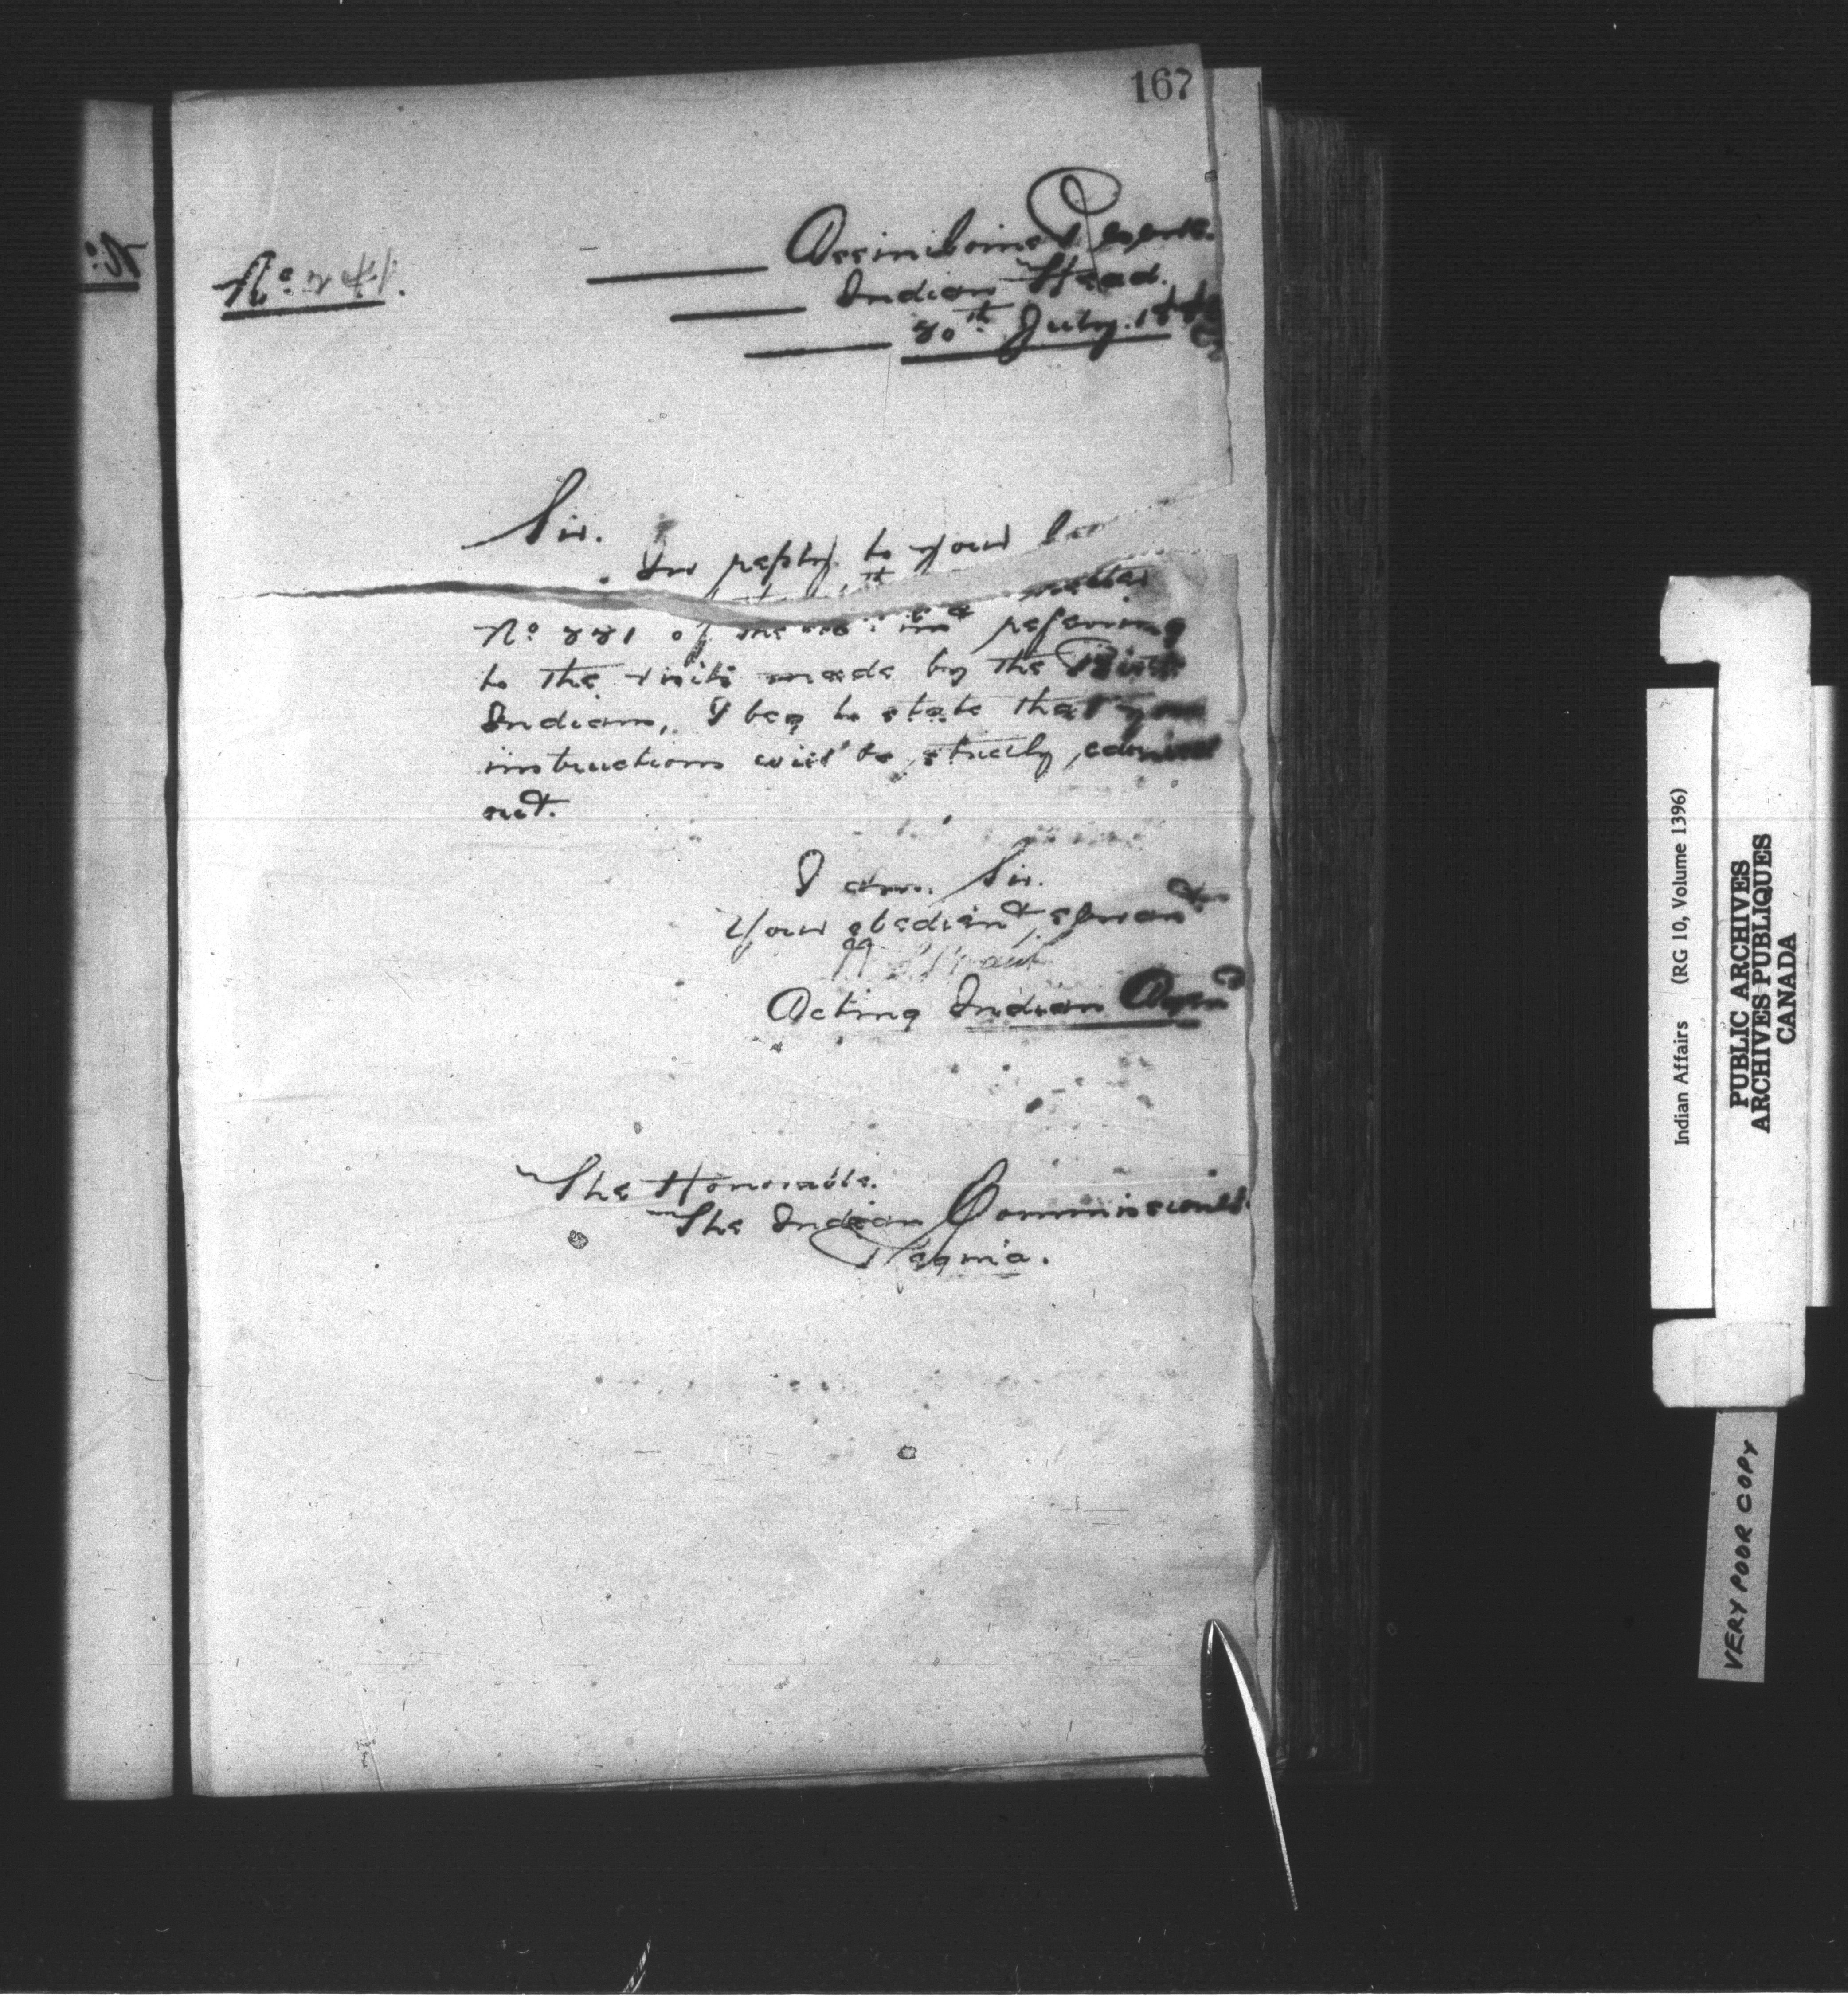 167
Assiniboine Reserve.
Nº 241.
Indian Head.
20th July. 188
Sir.
In reply to your
Nº 221 of referring
to the visits made by the
Indians, I beg to state that your
instructions will be strictly carried
out.
I am. Sir.
Your obedient servant
Acting Indian Agent
The Honorable.
The Indian Commissioner.
Regina.
Indian Affairs (RG 10, Volume 1396)
PUBLIC ARCHIVES
ARCHIVES PUBLIQUES
CANADA
VERY POOR COPY